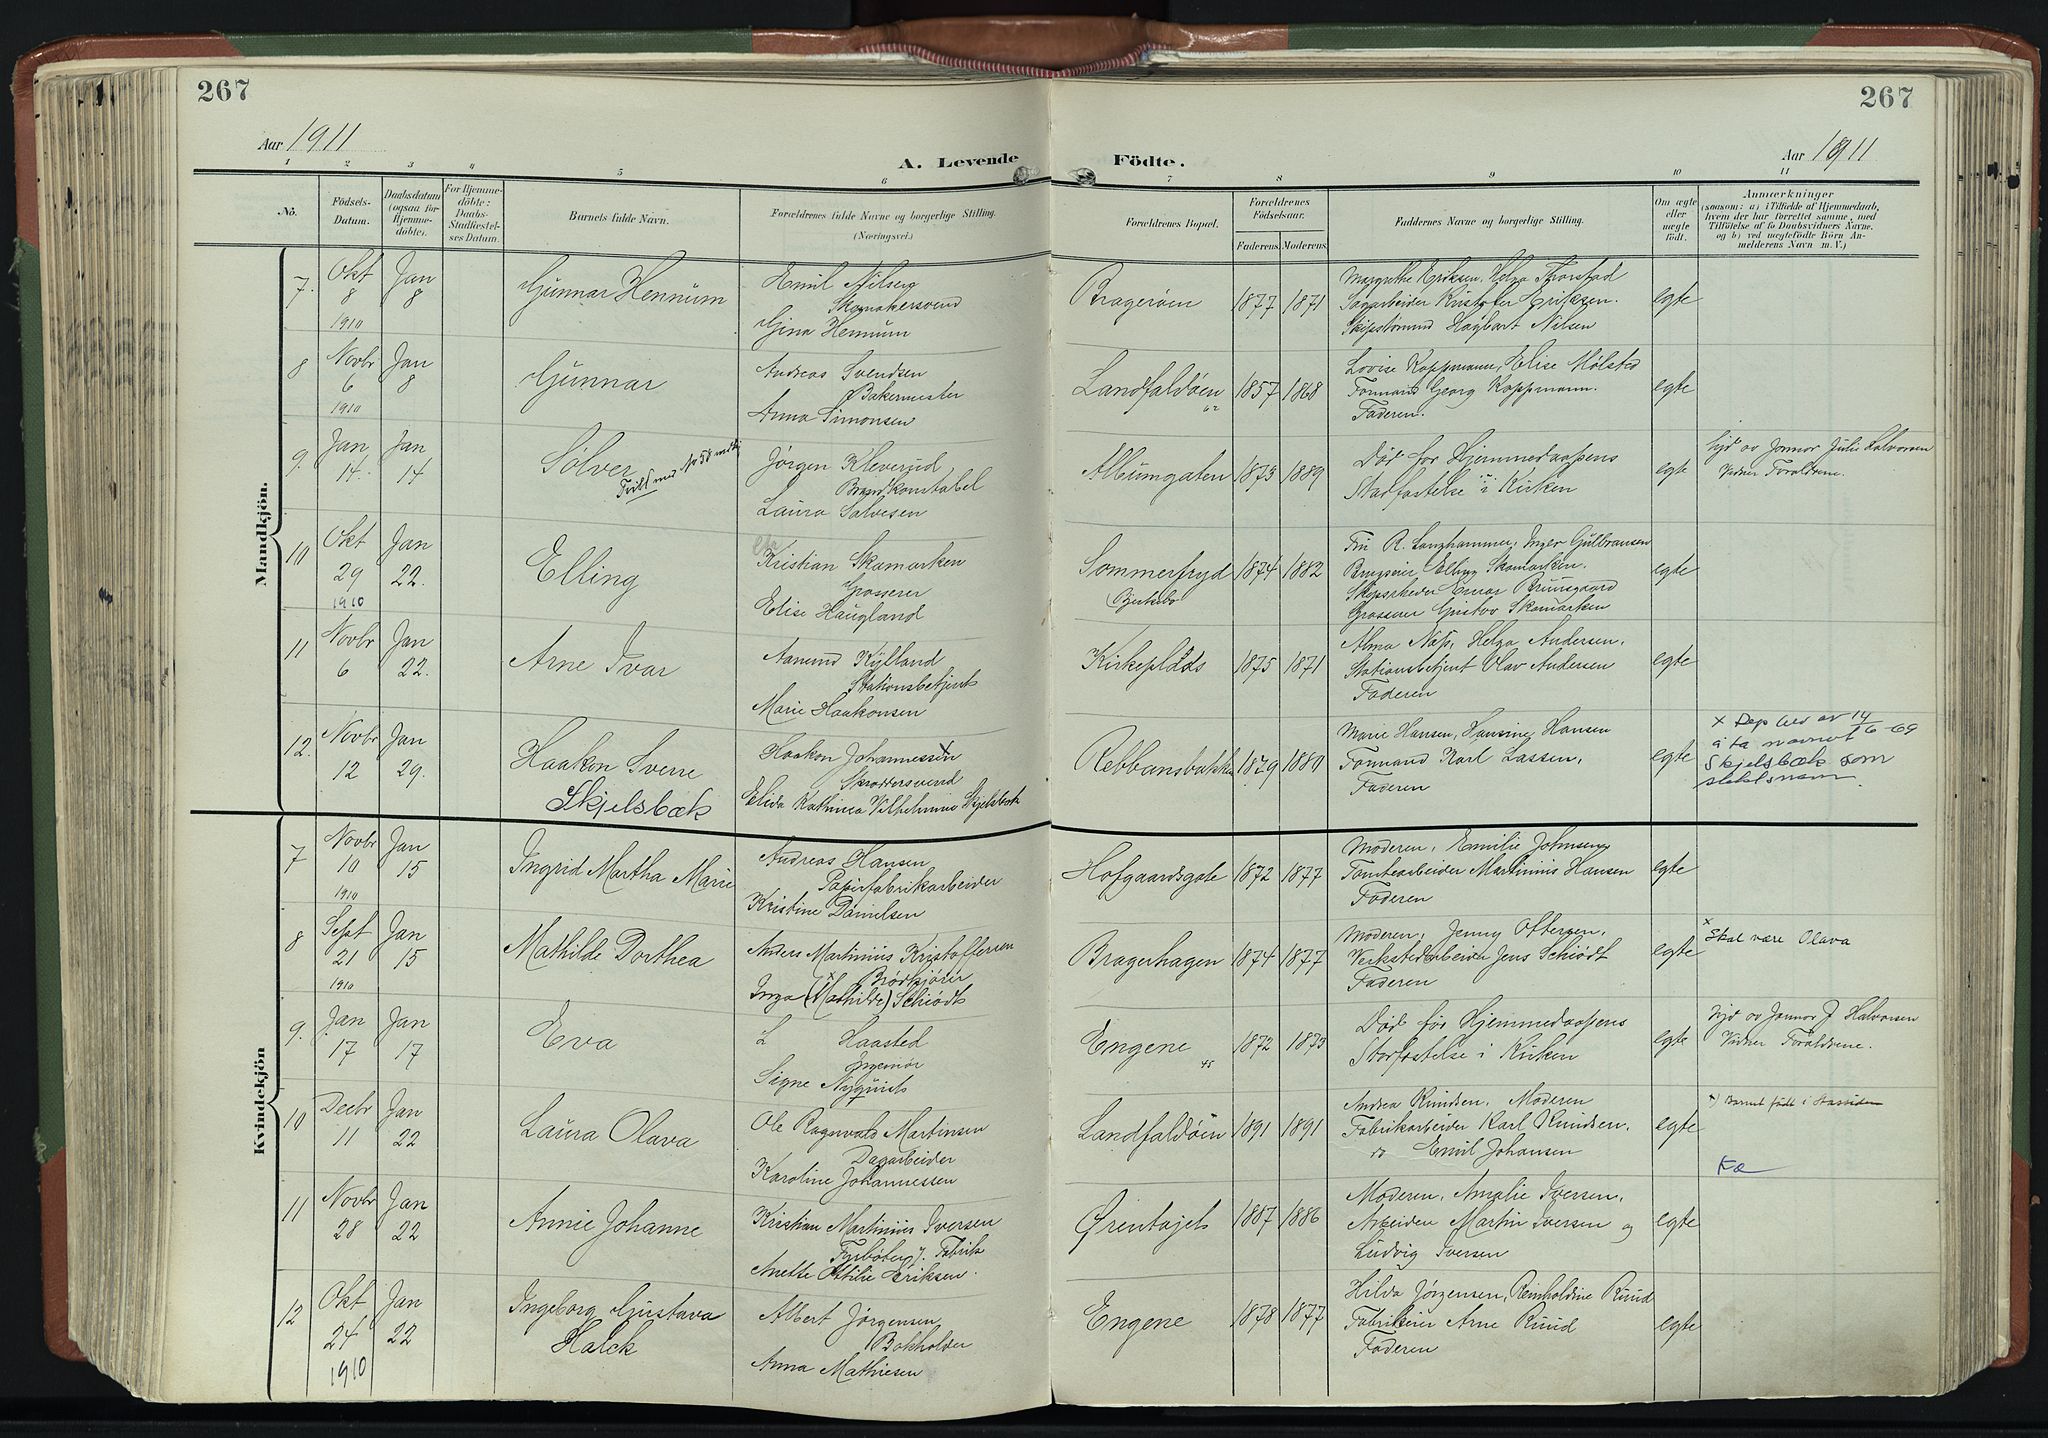 267
267
Aar 1911
A. Levende
Födte.
Aar 1911
1 2 3 4 5 6 7 8 9 10 11
No.
Födsels-
Datum.
Daabsdatum
(ogsaa for
Hjemme-
döbte).
For Hjemme-
döbte:
Daabs-
Stadfæstel-
ses Datum.
Barnets fulde Navn.
Forældrenes fulde Navne og borgerlige Stilling.
(Næringsvei.)
Forældrenes Bopæl.
Forældrenes
Födselsaar.
Faderens. Moderens.
Faddernes Navne og borgerlige Stilling.
Om ægte
eller
uægte
født.
Anmærkninger
(saasom: a) i Tilfælde af Hjemmedaab,
hvem der har forrettet samme, med
Tilföielse af to Daabsvidners Navne.
og b) ved uægtefödte Börn An-
melderens Navn m. V.)
Mandkjön.
7. Okt 8 1910
Jan 8
Gunnar Hennum
Emil Nilsen
Skomakersvend
Gina Hennum
Bragerøen
1877 1871
Margrethe Eriksen, Helga Thorstad
Sagarbeider Kristofer Eriksen.
Skipstømmd Hagbart Nilsen
egte
8 Novbr 6 1910
Jan 8
Gunnar
Andreas Svendsen
Bakermester
Anna Simonsen
Landfaldøen
62
1857 1868
Lovise Koppmann, Elise Mølsted
Formand Georg Koppmann.
Faderen.
egte
9. Jan 14.
Jan 14
Sølver
Tvill med No 58 mndkj
Jørgen Kleverud
Brandkonstabel
Laura Salvesen
Albumgaten
1873 1889
Død før Hjemmedaapens
Stadfæstelse i Kirken
egte
Hjd av Jonmor Julie Halvorsen
Vidner Forældrene.
10 Okt 29 1910
Jan 22.
Elling
Kristian Skamarken
Grosserer
Elise Haugland
Sommerfryd
Bjerkebo
1874 1882
Fru R. Langhammer, Inger Gulbransen
Brugseier Elling Skamarken.
Skipsreder Einar Bruusgaard
Grosserer Gustav Skamarken
egte
11 Novbr 6
Jan 22.
Arne Ivar
Aanund Kylland
Stationsbetjent
Marie Haakonsen
Kirkeplads
1875 1871
Alma Næss, Helga Andersen.
Stationsbetjent Olav Andersen
Faderen
egte
12. Novbr 12
Jan 29.
Haakon Sverre
Skjelsbæk
Haakon Johannessen x
Skræddersvend
Elida Kathinca Vilhelmine Skjelsbæk
Rebbansbakken
1879 1880
Marie Hansen, Hansine Hansen
Formand Karl Lassen,
Faderen
egte
x Dep bev av 14/6-69
å ta navnet
Skjelsbæk som
slektsnavn
Kvindekjön
7 Novbr 10 1910
Jan 15
Ingrid Martha Marie
Andreas Hansen
Papirfabrikarbeider
Kristine Danielsen
Hofgaardsgate
1872 1877
Moderen, Emilie Johnsen,
Tomtearbeider Martinius Hansen
Faderen
egte
8 Sept 21 1910
Jan 15
Mathilde Dorthea
Anders Martinius Kristoffersen
Brødkjører
Inga (x Mathilde) Schiødt
Bragerhagen
1874 1877
Moderen, Jenny Ottersen,
Verkstedarbeider Jens Schiødt
Faderen
egte
x
Skal være Olava
9. Jan 17
Jan 17
Eva
L Haasted
Ingeniør
Signe Nyquist
Engene
45
1872 1873
Død før Hjemmedaapens
Stadfæstelse i Kirken
egte
Hjd av Jonmor J Halvorsen
Vidner Forældrene.
10 Decbr 11
Jan 22
Laura Olava
Ole Ragnvald Martinsen
Dagarbeider
Karoline Johannessen
Landfaldøen
1891 1891
Andrea Knudsen, Moderen
Fabrikarbeider Karl Knudsen,
do Emil Johansen
egte
x) Barnet født i
11 Novbr 28
Jan 22
Annie Johanne
Kristian Martinius Iversen
Fyrbøter v. Fabrik
Anette Ottilie Eriksen.
Ørentajet
1887 1886
Moderen, Amalie Iversen,
Arbeider Martin Iversen og
Ludvig Iversen
egte
12 Okt 24 1910
Jan 22
Ingeborg Gustava
Halck
Albert Jørgensen
Bokholder
Anna Mathiesen
Engene
1878 1877
Hilda Jørgensen, Reinholdine Ruud
Fabrikeier Arne Ruud
Faderen
egte